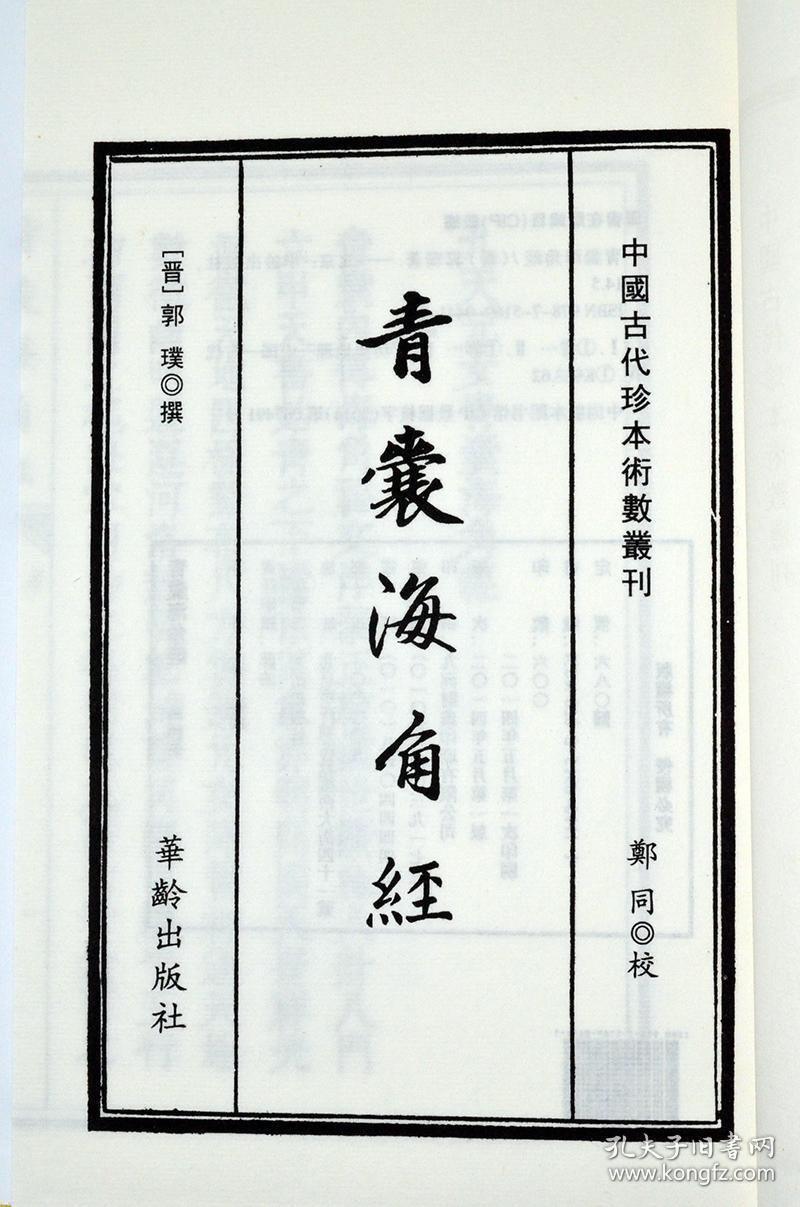 中國古代珍本術數叢刊
鄭同◎校
青囊海角經
[晋]郭璞◎撰
華齡出版社
孔夫子旧书网
www.kongfz.com